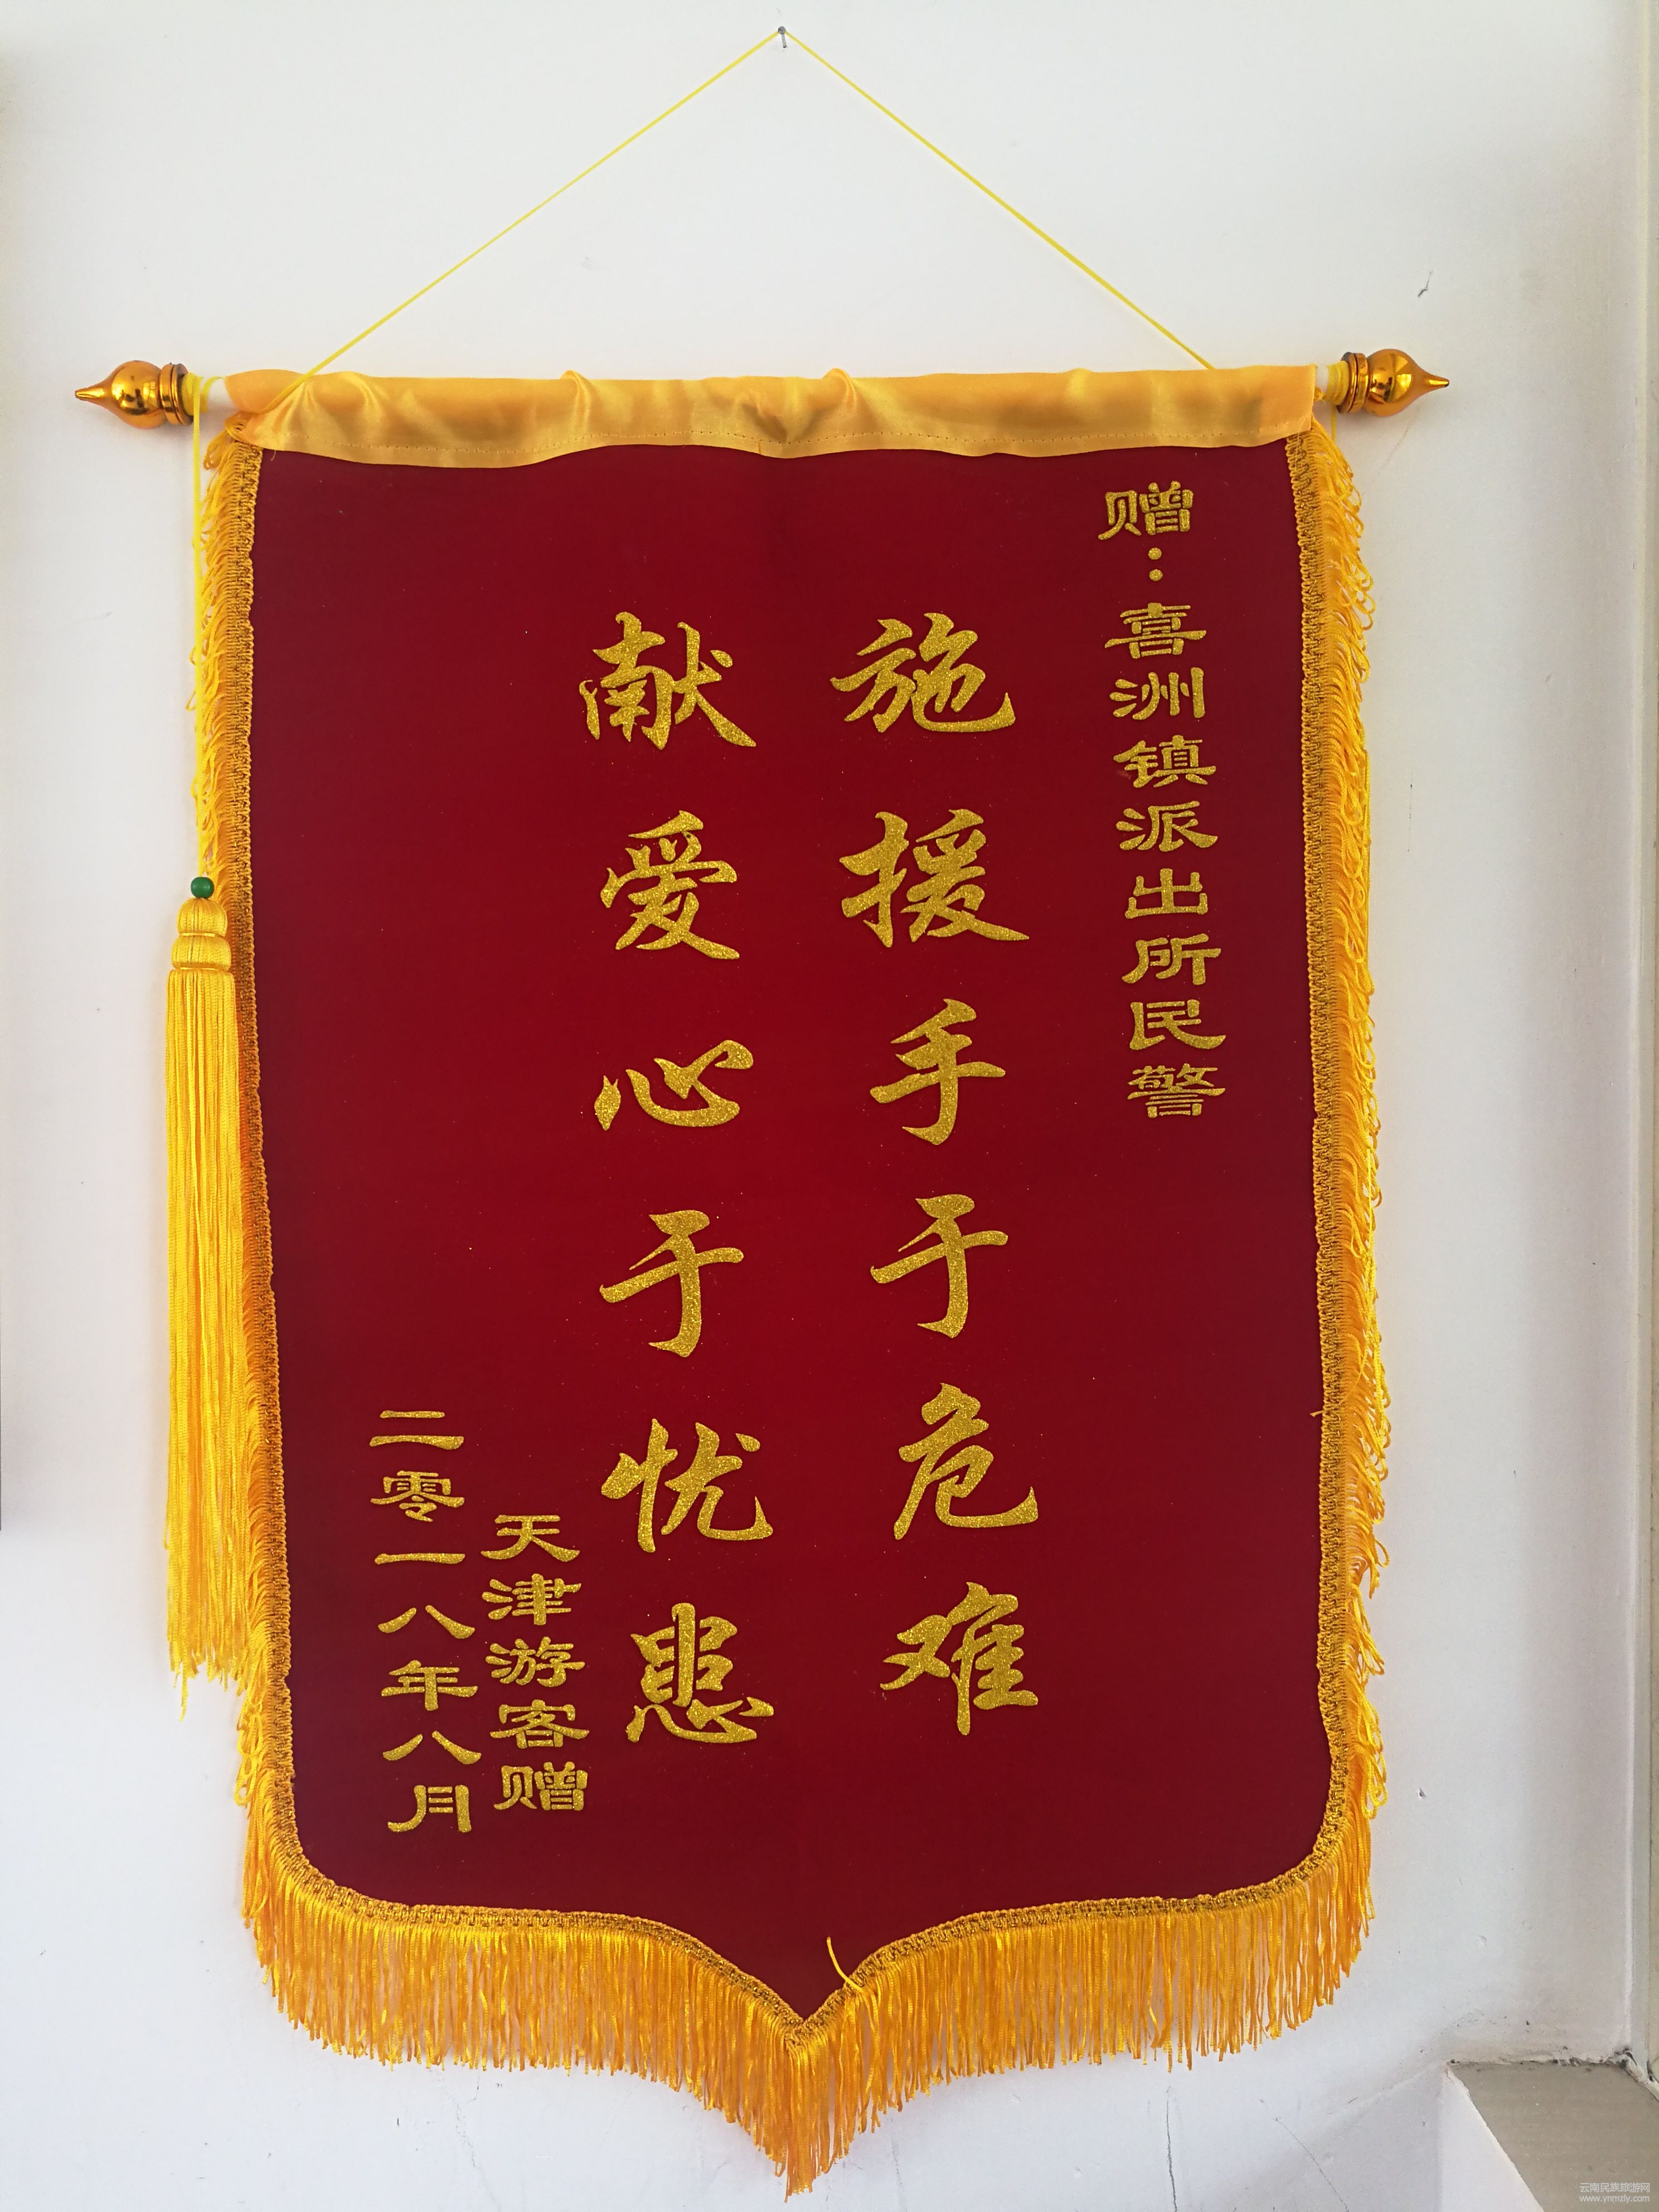 赠：喜洲镇派出所民警
施援手于危难
献爱心于忧患
天津游客赠
二零一八年八月
云南民族旅游网
www.ynmzly.com